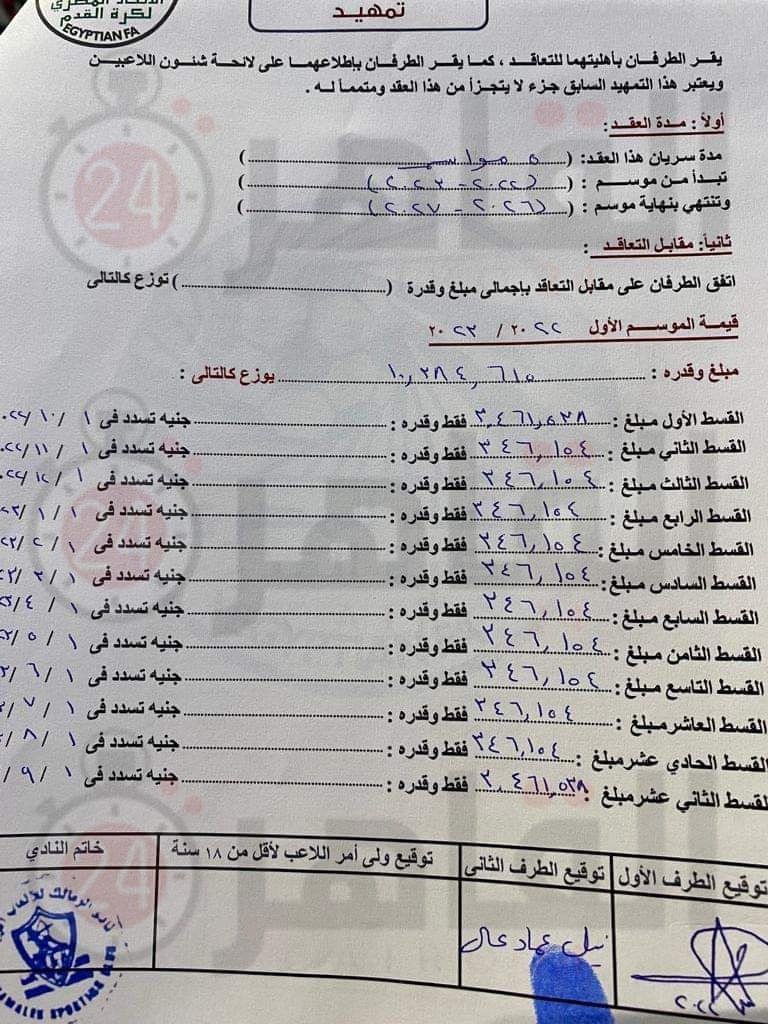 لكرة القدم
EGYPTIAN FA
تمهيد
يقر الطرفان بأهليتهما للتعاقد ، كما يقر الطرفان بإطلاعهما على لائحة شئون اللاعبين
ويعتبر هذا التمهيد السابق جزء لا يتجزأ من هذا العقد ومتمماً له .
أولاً : مدة العقد :
مدة سريان هذا العقد: ( ٥ مواسم )
تبدأ من موسم : ( (٢٠٢٢ - ٢٠٢٣) )
وتنتهي بنهاية موسم : ( (٢٠٢٦ - ٢٠٢٧) )
ثانياً: مقابل التعاقد :
اتفق الطرفان على مقابل التعاقد بإجمالى مبلغ وقدرة ( ) توزع كالتالى
قيمة الموسم الأول ٢٠٢٢ / ٢٠٢٣
مبلغ وقدره : ١٠,٣٨٤,٦١٥ يوزع كالتالى :
القسط الأول مبلغ : ٣,٤٦١,٥٣٨ فقط وقدره : جنيه تسدد فى ١ / ١٠ /
القسط الثاني مبلغ : ٣٤٦,١٥٤ فقط وقدره : جنيه تسدد فى ١ / ١١ /
القسط الثالث مبلغ : ٣٤٦,١٥٤ فقط وقدره : جنيه تسدد فى ١ / ١٢ /
القسط الرابع مبلغ : ٣٤٦,١٥٤ فقط وقدره : جنيه تسدد فى ١ / ١ /
القسط الخامس مبلغ : ٣٤٦,١٥٤ فقط وقدره : جنيه تسدد فى ١ / ٢ /
القسط السادس مبلغ : ٣٤٦,١٥٤ فقط وقدره : جنيه تسدد فى ١ / ٣ /
القسط السابع مبلغ : ٣٤٦,١٥٤ فقط وقدره : جنيه تسدد فى ١ / ٤ /
القسط الثامن مبلغ : ٣٤٦,١٥٤ فقط وقدره : جنيه تسدد فى ١ / ٥ /
القسط التاسع مبلغ : ٣٤٦,١٥٤ فقط وقدره : جنيه تسدد فى ١ / ٦ /
القسط العاشر مبلغ : ٣٤٦,١٥٤ فقط وقدره : جنيه تسدد فى ١ / ٧ /
القسط الحادي عشر مبلغ : ٣٤٦,١٥٤ فقط وقدره : جنيه تسدد فى ١ / ٨ /
القسط الثاني عشر مبلغ : ٣,٤٦١,٥٣٨ فقط وقدره : جنيه تسدد فى ١ / ٩ /
توقيع الطرف الأول توقيع الطرف الثانى توقيع ولى أمر اللاعب لأقل من ١٨ سنة خاتم النادي
نبيل عماد
٢٠٢٢
نادي الزمالك للألعاب
ZAMALEK SPORTING CLUB
القاهرة 24
القاهرة 24
القاهرة 24